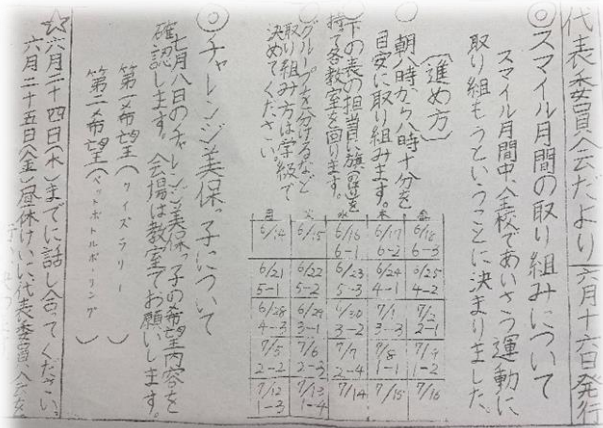 代表委員会だより
六月十六日発行
◎スマイル月間の取り組みについて
スマイル月間中、全校であいさつ運動に
取り組もうということに決まりました。
〔進め方〕
朝八時から八時十分を
目安に取り組みます。
下の表の担当
持って各教室を回ります。
グループを分けるなど
取り組み方は学級で
決めてください。
月 火 水 木 金
6/14 6/15 6/16 6/17 6/18
6-1 6-2 6-3
6/21 6/22 6/23 6/24 6/25
5-1 5-2 5-3 4-1 4-2
6/28 6/29 6/30 7/1 7/2
4-3 3-1 3-2 3-3 2-1
7/5 7/6 7/7 7/8 7/9
2-2 2-3 2-4 1-1 1-2
7/12 7/13 7/14 7/15 7/16
1-3 1-4
◎チャレンジ美保っ子について
七月八日のチャレンジ美保っ子の希望内容を
確認します。会場は教室でお願いします。
第一希望(クイズラリー)
第二希望(ペットボトルボーリング)
☆六月二十四日(木)までに話し合てください。
六月二十五日(金)昼休けいに代表委員会を